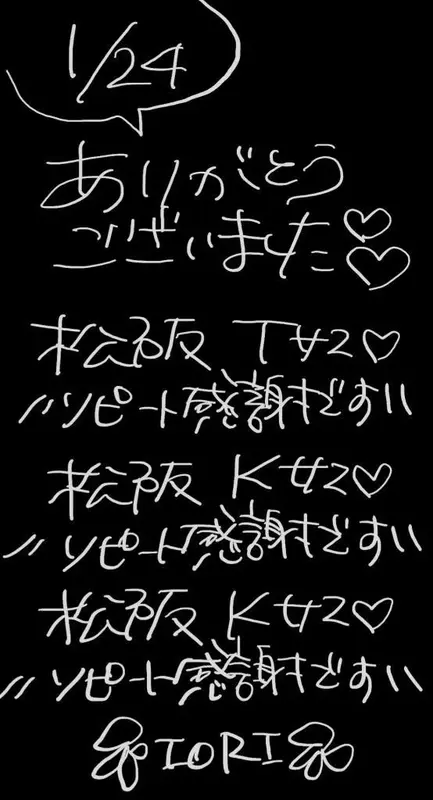 1/24
ありがとう
ございました♡♡
松阪 Tサマ♡
\\リピート感謝です//
松阪 Kサマ♡
\\リピート感謝です//
松阪 Kサマ♡
\\リピート感謝です//
IORI